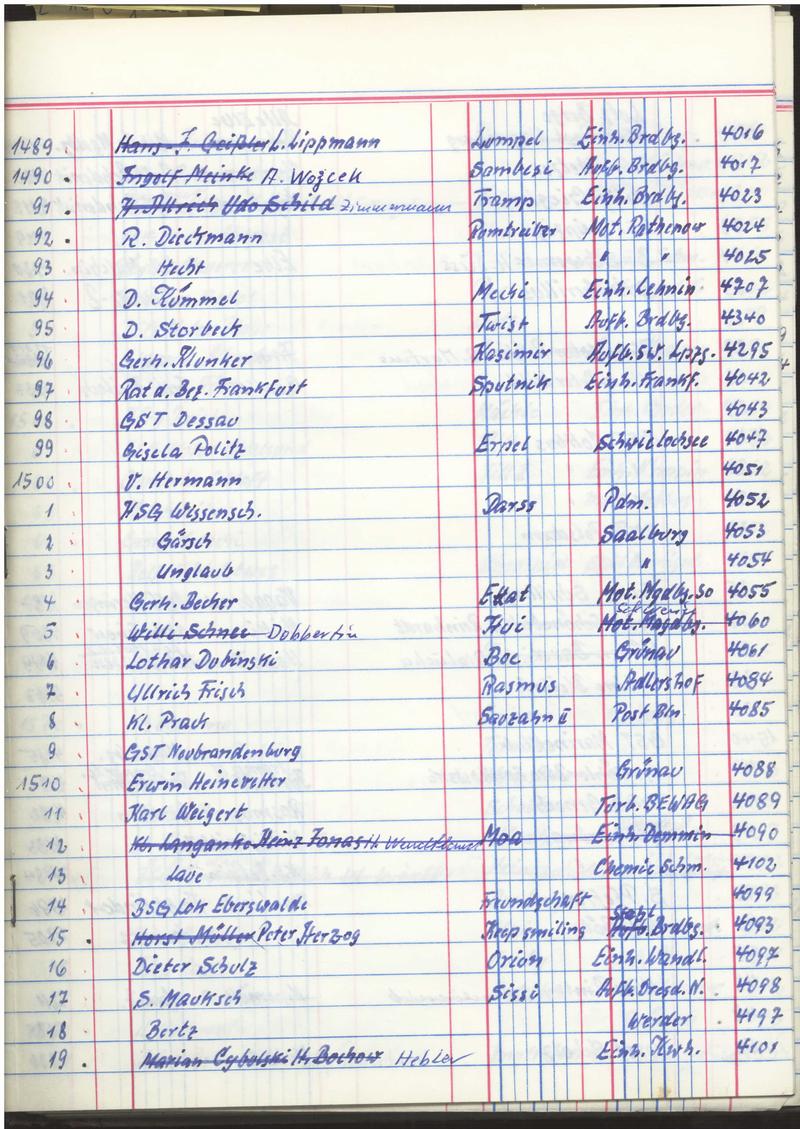 1489. Hans-J. Geißler L. Lippmann Lumpel Einh. Brdbg. 4016
1490. Ingolf Meinke A. Wożcek Sambesi Aufb. Brdbg. 4017
91. H. Udo Schild Zimmermann Tramp Einh. Brdbg. 4023
92. R. Dieckmann Romtreiber Mot. Rathenow 4024
93 Hecht " " 4025
94 D. Kümmel Mecki Einh. Lehnin 4707
95 D. Storbeck Twist Aufb. Brdbg. 4340
96 Gerh. Klunker Kasimir Aufb. SW. Lpzg. 4295
97 Rat d. Bez. Frankfurt Sputnik Einh. Frankf. 4042
98 GST Dessau 4043
99 Gisela Politz Erpel Schwielochsee 4047
1500 V. Hermann 4051
1 HSG Wissensch. Darss Pdm. 4052
2 Gärsch Saalburg 4053
3 Unglaub " 4054
4 Gerh. Becher Mot. Mgdbg. SO 4055
5 Willi Schnee Dobbertin Hui Mot. Magdbg. Schwerin 4060
6 Lothar Dubinski Boc Grünau 4061
7 Ullrich Frisch Rasmus Adlershof 4084
8 Kl. Prack Sauzahn II Post Bln 4085
9 GST Neubrandenburg
1510 Erwin Heinevetter Grünau 4088
11 Karl Weigert Turb. BEWAG 4089
12 Kl. Langanke Heinz Jonas Moa Einh. Demmin 4090
13 Laue Chemie Schm. 4102
14 BSG Lok Eberswalde Freundschaft 4099
15. Horst Müller Peter Herzog Keep smiling Aufb. Stahl Brdbg. 4093
16 Dieter Schulz Orion Einh. Wandl. 4097
17 S. Mauksch Sissi Aufb. Dresd. N. 4098
18 Bertz Werder 4197
19. Marian Cybolski H. Bochow Hebler Einh. Kwh. 4101